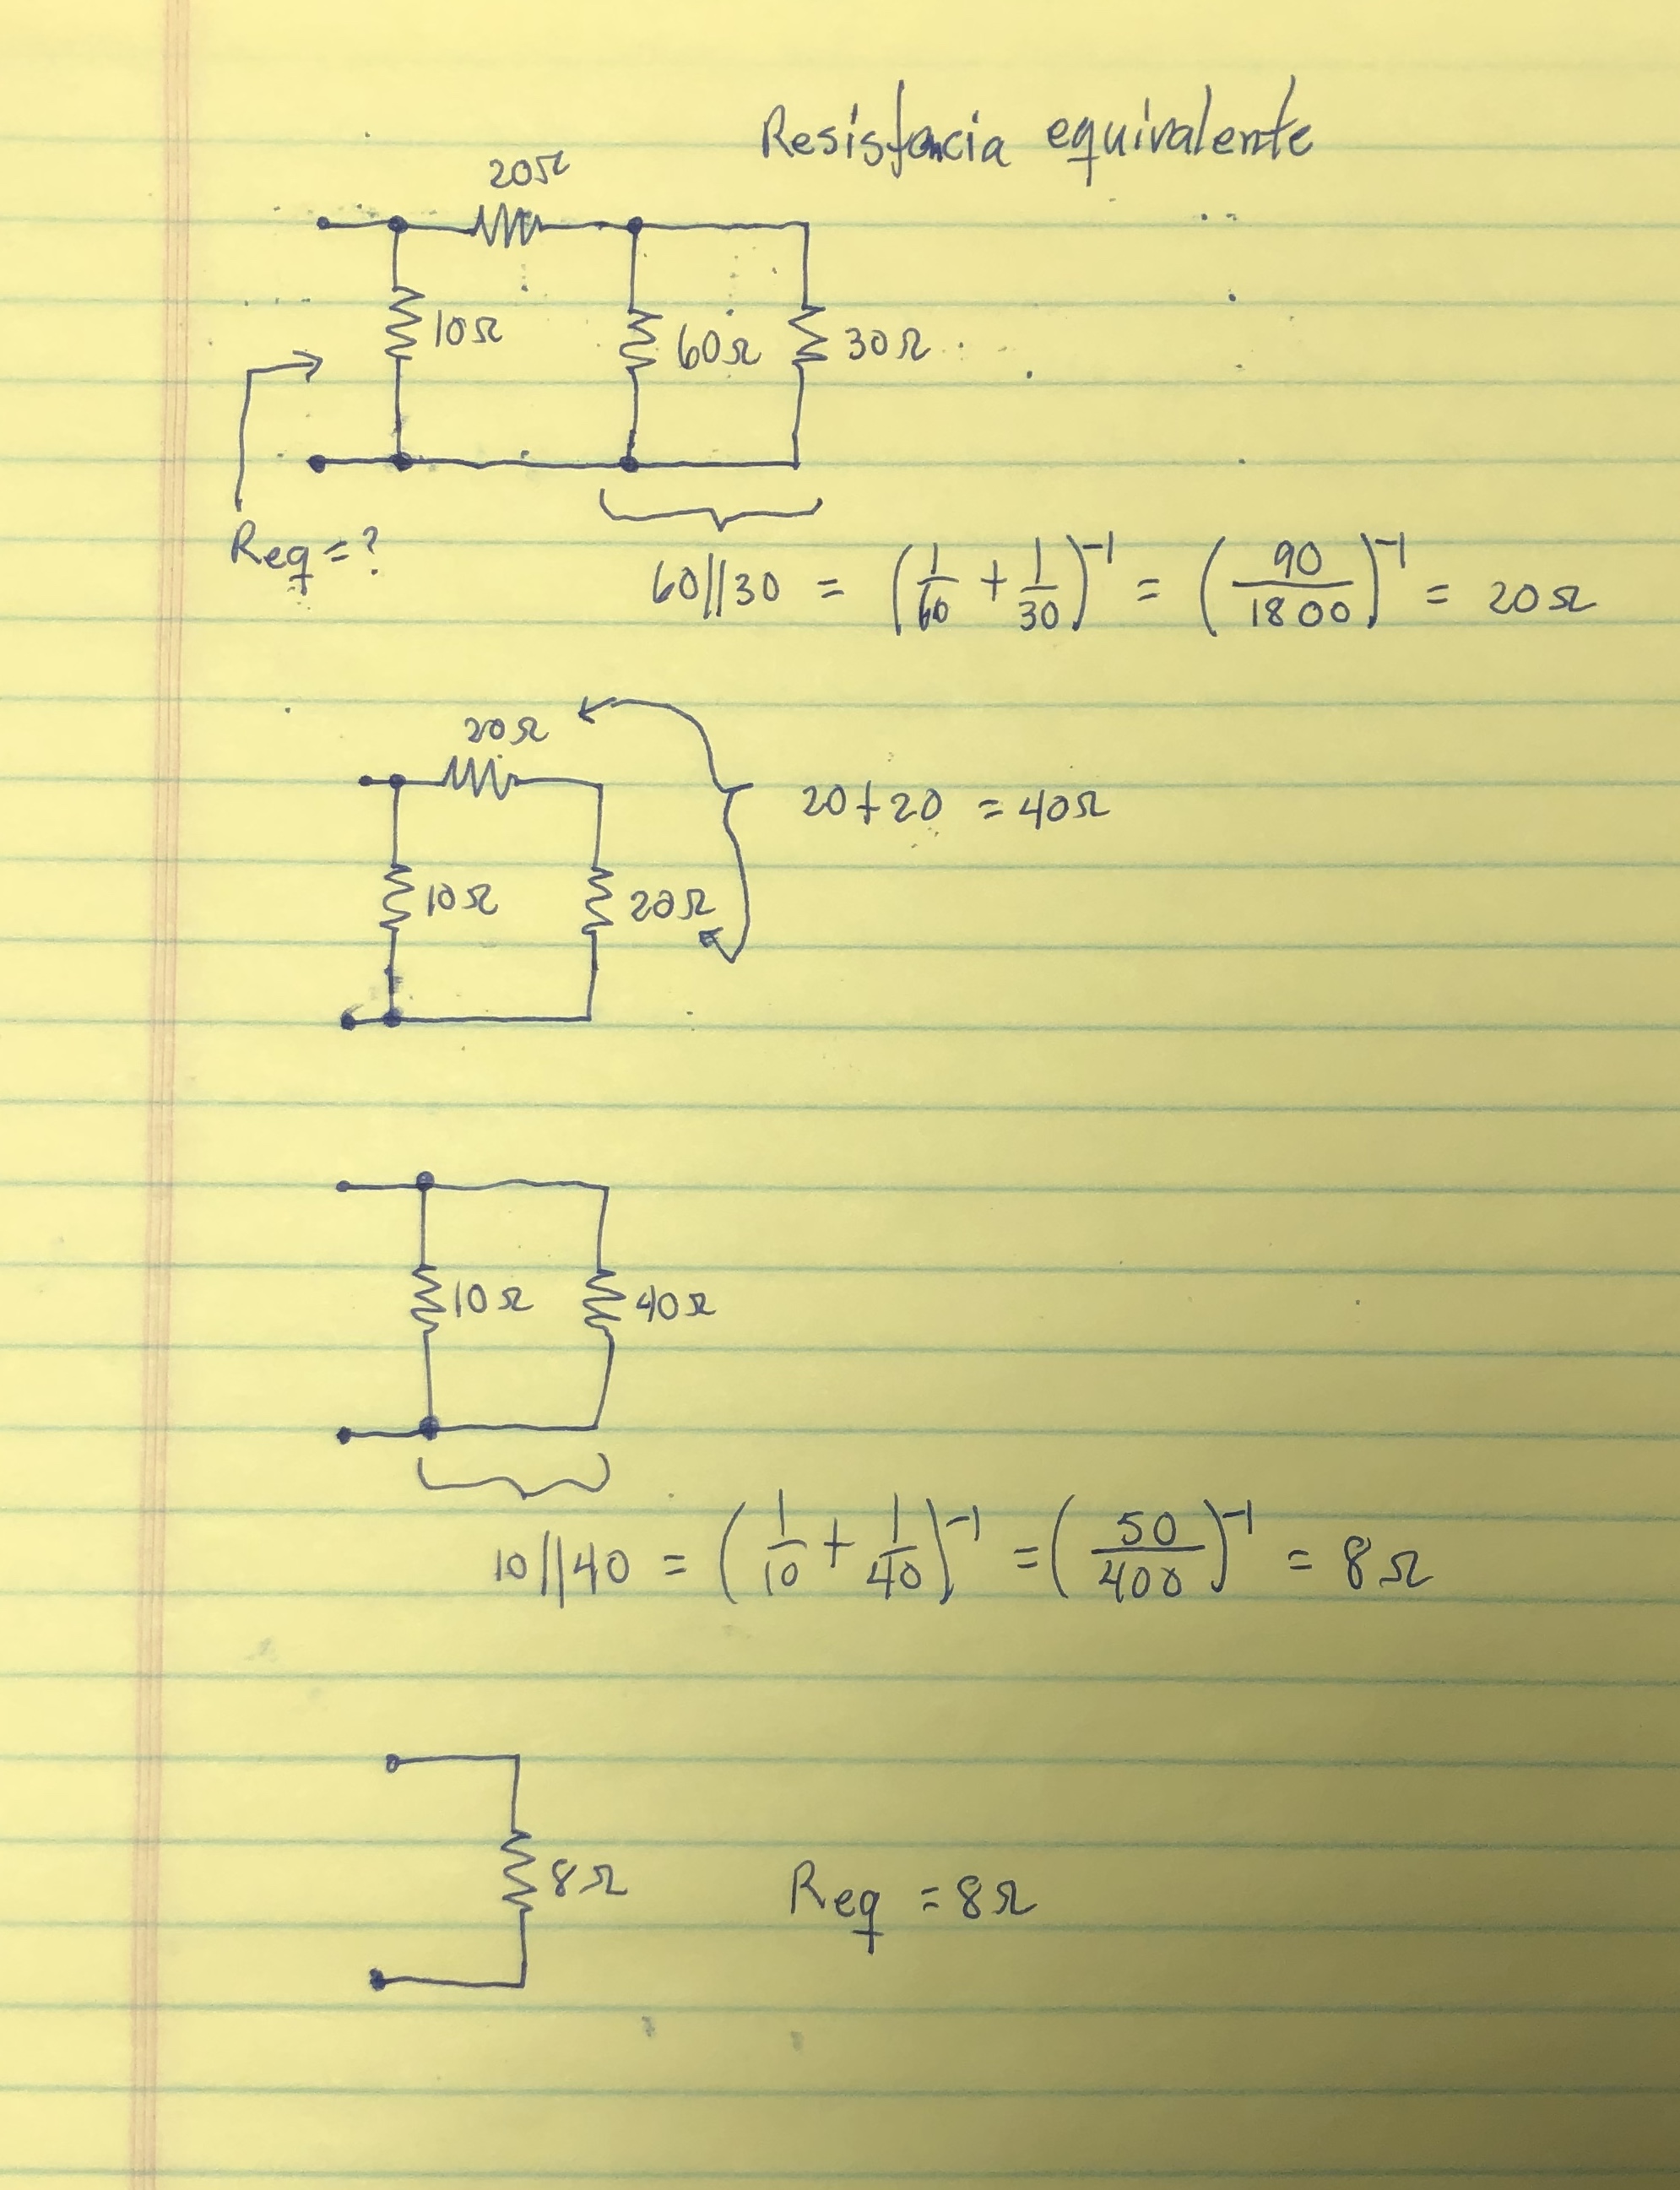 Resistencia equivalente
20Ω
10Ω
60Ω
30Ω
Req = ?
60||30 = (1/60 + 1/30)^-1 = (90/1800)^-1 = 20Ω
20Ω
20+20 = 40Ω
10Ω
20Ω
10Ω
40Ω
10||40 = (1/10 + 1/40)^-1 = (50/400)^-1 = 8Ω
8Ω
Req = 8Ω